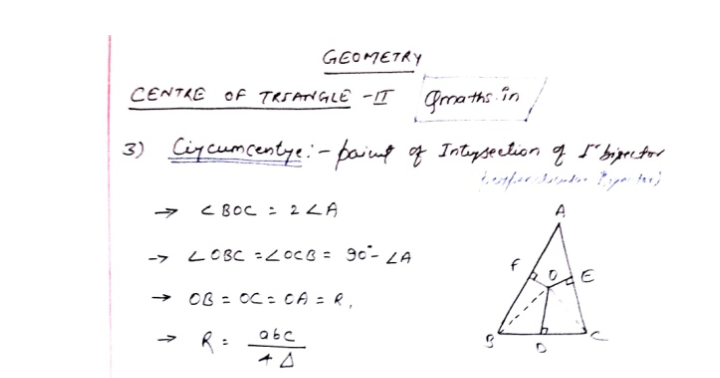 GEOMETRY
CENTRE OF TRIANGLE - II
Qmaths.in
3) Circumcentre :- point of Intersection of ⊥r bisector
(perpendicular Bisector)
→ ∠BOC = 2∠A
→ ∠OBC = ∠OCB = 90° - ∠A
→ OB = OC = OA = R.
→ R = abc
4Δ
A
F
O
E
B
D
C